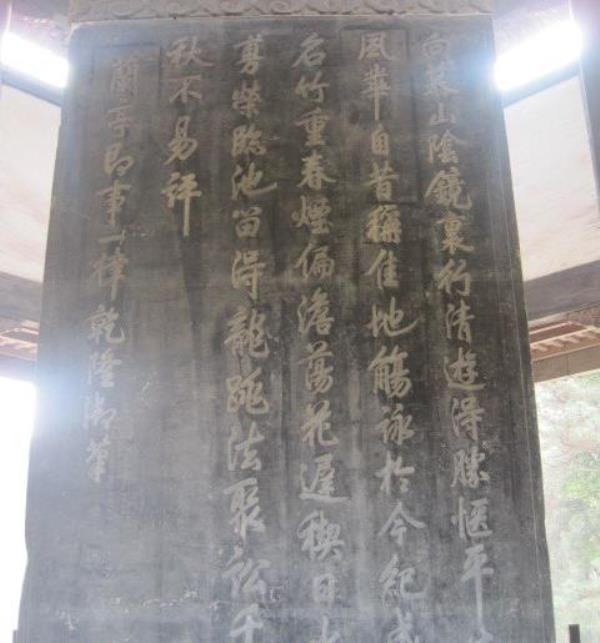 向慕山陰鏡裏行清遊得勝愜平
風華自昔稱佳地觴詠於今紀
名竹重春煙偏澹蕩花遲禊日
芳縈臨池留得龍跳法聚訟千
秋不易評
蘭亭即事一律乾隆御筆